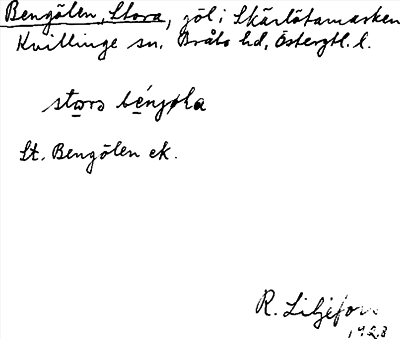 Bengölen, Stora, göl i Skärlötamarken
Kvillinge sn. Bråbo hd, Östergtl. l.
St. Bengölen ek.
R. Liljefors
1928